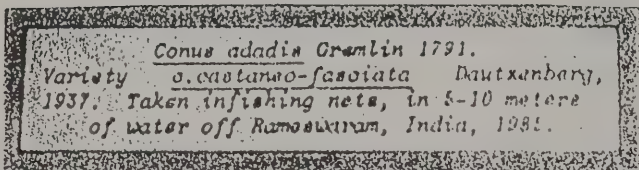 Conus adadis Gremlin 1791.
Variety c.castaneo-fasciata Dautxenberg,
1937. Taken infishing nets, in 5-10 meters
of water off Rameswaram, India, 1985.